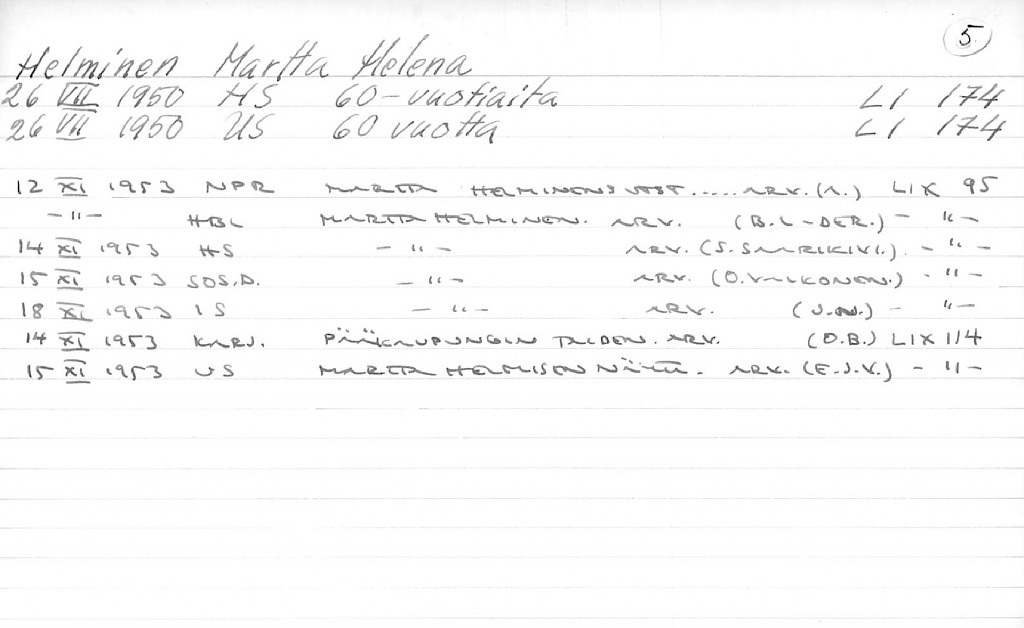 5.
Helminen Martta Helena
26 VII 1950 HS 60-vuotiaita LI 174
26 VII 1950 US 60 vuotta LI 174
12 XI 1953 NPR MARTTA HELMINENS UTST..... ARV. (A.) LIX 95
-"- HBL MARTTA HELMINEN. ARV. (B. L-DER.) -"-
14 XI 1953 HS -"- ARV. (S. SAARIKIVI.) -"-
15 XI 1953 SOS.D. -"- ARV. (O. VALKONEN.) -"-
18 XI 1953 IS -"- ARV. (J.N.) -"-
14 XI 1953 KARJ. PÄÄKAUPUNGIN TAIDEN. ARV. (O.B.) LIX 114
15 XI 1953 US MARTTA HELMISEN NÄYTT. ARV. (E.J.V.) -"-